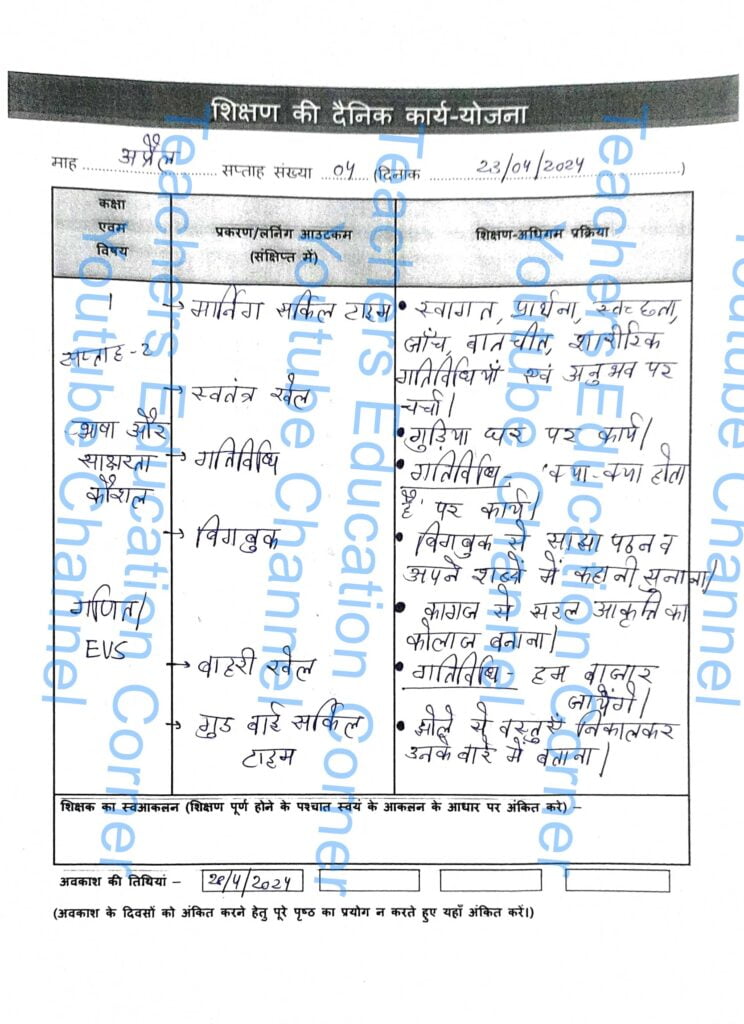 शिक्षण की दैनिक कार्य-योजना
माह अप्रैल सप्ताह संख्या 04 (दिनांक 23/04/2024)
कक्षा
एवम
विषय
प्रकरण/लर्निंग आउटकम
(संक्षिप्त में)
शिक्षण-अधिगम प्रक्रिया
1
सप्ताह-2
भाषा और
साक्षरता
कौशल
गणित/
EVS
→ मार्निंग सर्किल टाइम
→ स्वतंत्र खेल
→ गतिविधि
→ बिगबुक
→ बाहरी खेल
→ गुड बाई सर्किल
टाइम
• स्वागत, प्रार्थना, स्वच्छता,
जाँच, बातचीत, शारीरिक
गतिविधियाँ एवं अनुभव पर
चर्चा।
• गुड़िया घर पर कार्य।
• गतिविधि- 'क्या-क्या होता
है' पर कार्य।
• बिगबुक से साझा पठन व
अपने शब्दों में कहानी सुनाना।
• कागज से सरल आकृति का
कोलाज बनाना।
• गतिविधि- हम बाजार
जायेंगे।
• झोले से वस्तुएँ निकालकर
उनके बारे में बताना।
शिक्षक का स्वआकलन (शिक्षण पूर्ण होने के पश्चात स्वयं के आकलन के आधार पर अंकित करे) –
अवकाश की तिथियां – 28/4/2024
(अवकाश के दिवसों को अंकित करने हेतु पूरे पृष्ठ का प्रयोग न करते हुए यहाँ अंकित करें।)
Teachers Education Corner
Youtube Channel
Teachers Education Corner
Youtube Channel
Teachers Education Corner
Youtube Channel
Youtube Channel